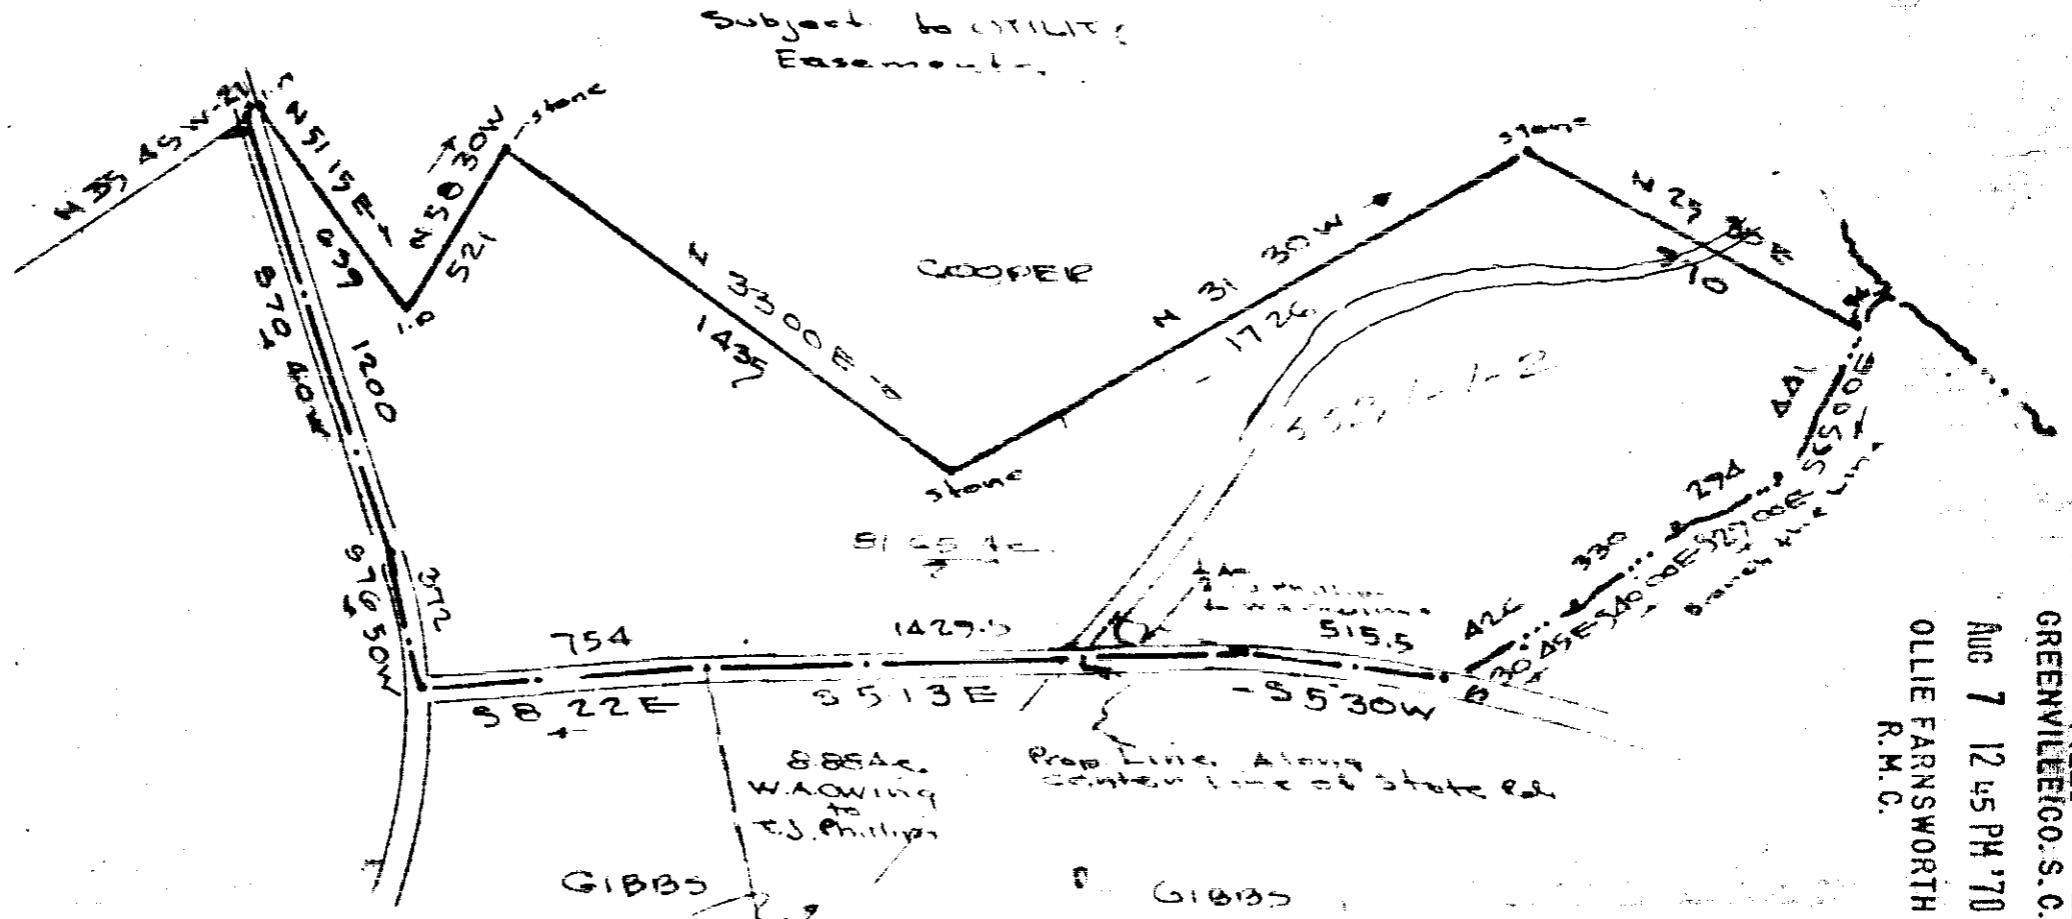 Subject to UTILITY
Easements
N 35 45 W
N 51 15 E
N 58 30 W
stone
699
521
i.p
S 70 40 W
1200
N 33 00 E
1435
COOPER
stone
N 31 30 W
1726
stone
N 25 30 E
310
441
S 65 00 E
294
S 27 00 E
330
S 40 00 E
426
30 45 E
Branch the Line
552.1-1-2
81.65 Ac.
S 76 50 W
372
754
1429.5
515.5
S 8 22 E
S 5 13 E
S 5 30 W
8.85 Ac.
W.A. Owing
to
T.J. Phillips
Prop. Line Along
Center Line of State Rd.
GIBBS
GIBBS
GREENVILLE CO. S. C.
AUG 7 12 45 PM '70
OLLIE FARNSWORTH
R.M.C.